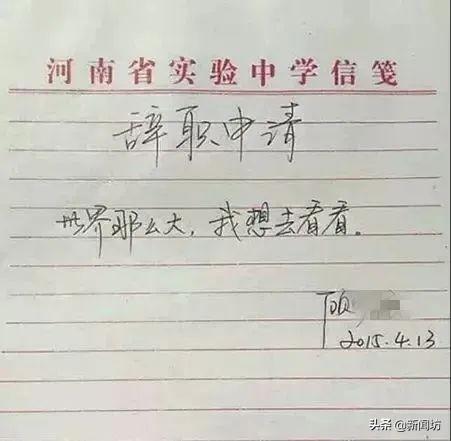 河南省实验中学信笺
辞职申请
世界那么大，我想去看看。
顾
2015.4.13
头条 @新闻坊